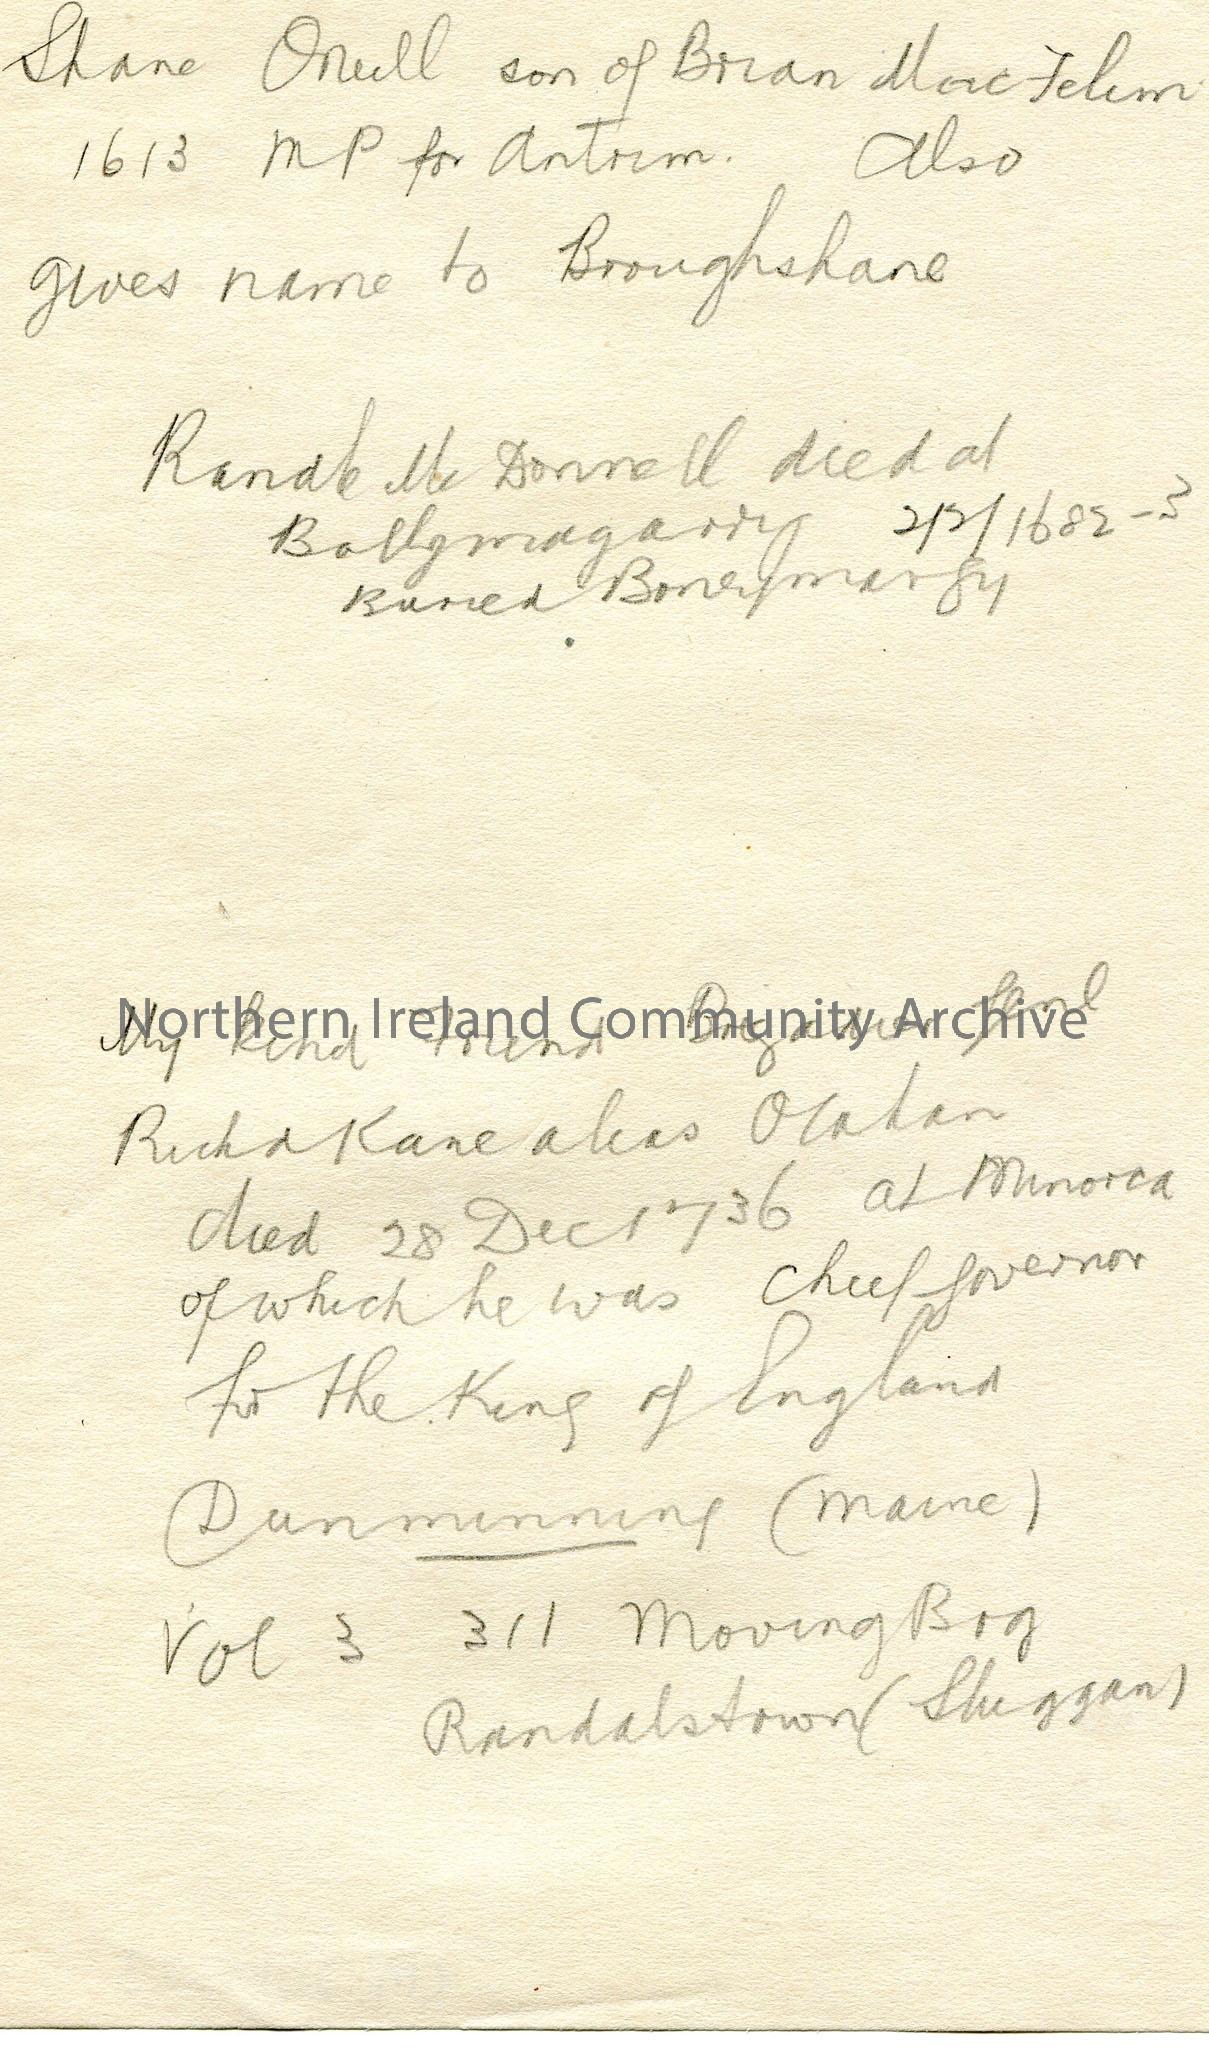 Shane Oneill son of Brian Mac Felim
1613 MP for Antrim. Also
gives name to Broughshane
Randle Mc Donnell died at
Ballymagarry 2/2/1682-3
Buried Boneymargy
Northern Ireland Community Archive
My kind Friend Brigadier Genl
Richd Kane alias Ocahan
died 28 Dec 1736 at Minorca
of which he was Chief Governor
for the King of England
Dunminning (Maine)
Vol 3 311 Moving Bog
Randalstown (Sluggan)